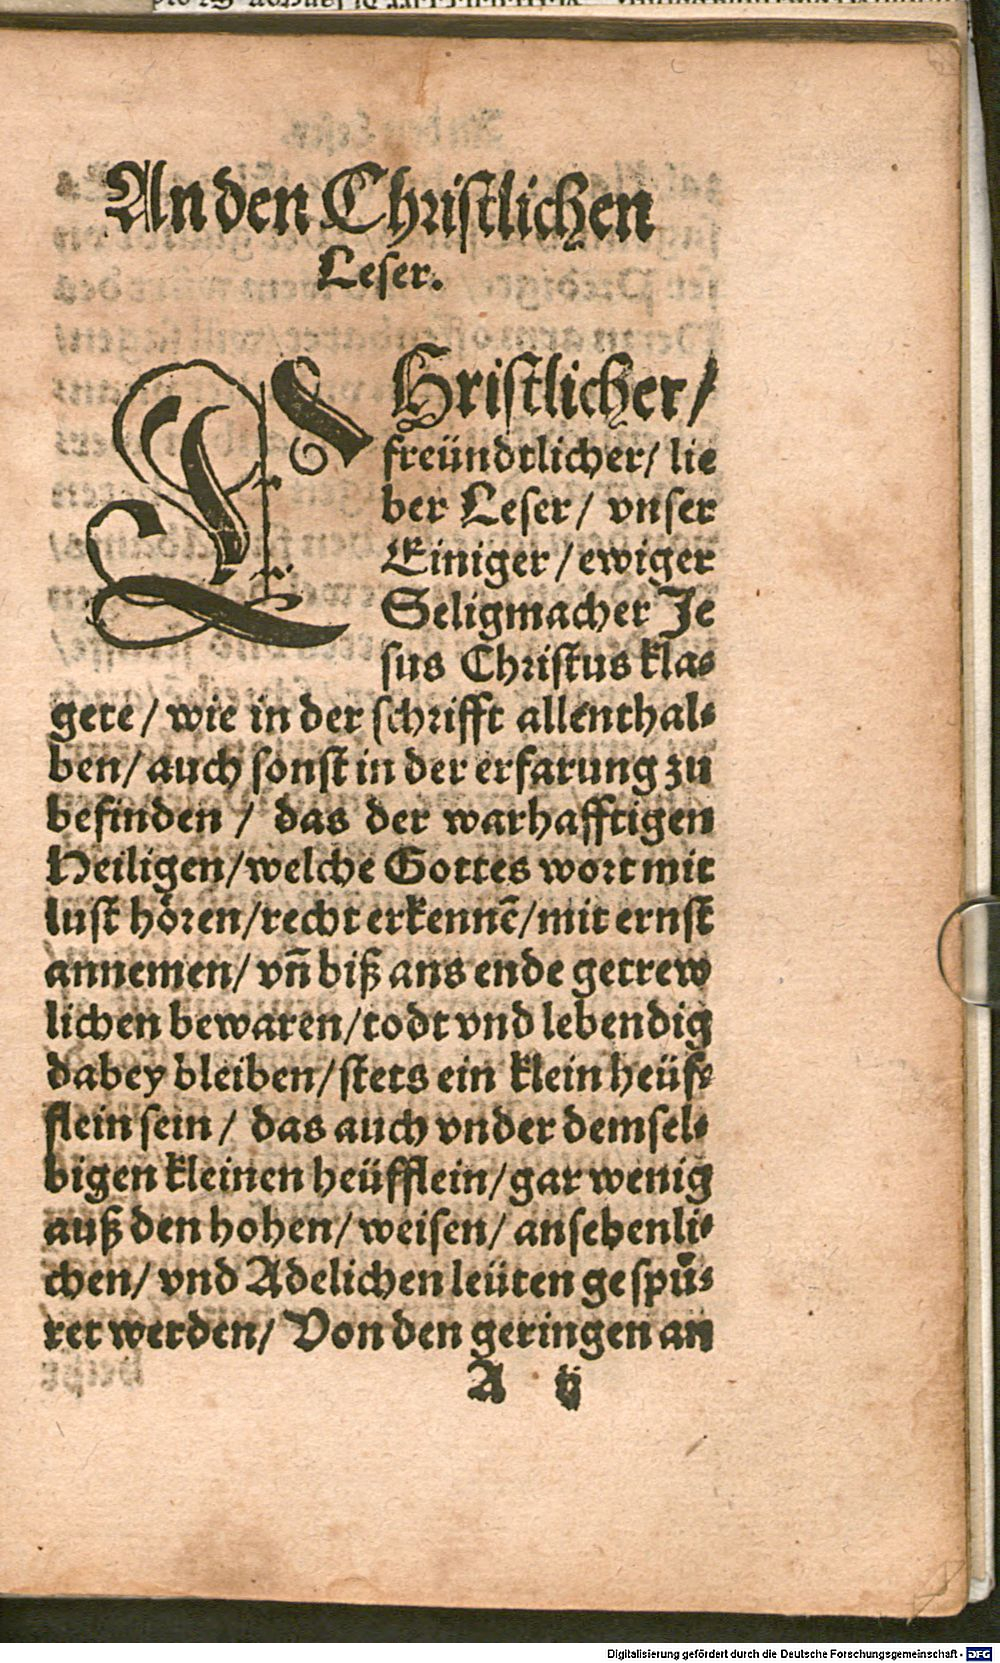 An den Christlichen
Leser.
CHristlicher/
freündtlicher/ lie
ber Leser/ vnser
Einiger/ ewiger
Seligmacher Je
sus Christus kla⸗
gete/ wie in der schrifft allenthal⸗
ben/ auch sonst in der erfarung zu
befinden/ das der warhafftigen
Heiligen/ welche Gottes wort mit
lust hören/ recht erkennē/ mit ernst
annemen/ vn̄ biß ans ende getrew
lichen bewaren/ todt vnd lebendig
dabey bleiben/ stets ein klein heüf⸗
flein sein/ das auch vnder demsel⸗
bigen kleinen heüfflein/ gar wenig
auß den hohen/ weisen/ ansehenli⸗
chen/ vnd Adelichen leüten gespü⸗
ret werden/ Von den geringen an
A ij
Digitalisierung gefördert durch die Deutsche Forschungsgemeinschaft - DFG